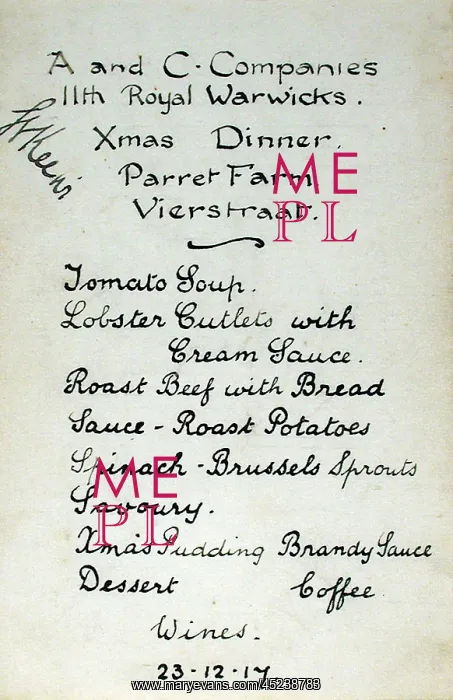 A and C. Companies
11th Royal Warwicks.
Xmas Dinner.
Parret Farm
Vierstraat.
Tomato Soup.
Lobster Cutlets with
Cream Sauce.
Roast Beef with Bread
Sauce - Roast Potatoes
Spinach - Brussels Sprouts
Savoury.
Xmas Pudding Brandy Sauce
Dessert Coffee
Wines.
23-12-17
ME
PL
ME
PL
www.maryevans.com/45238783